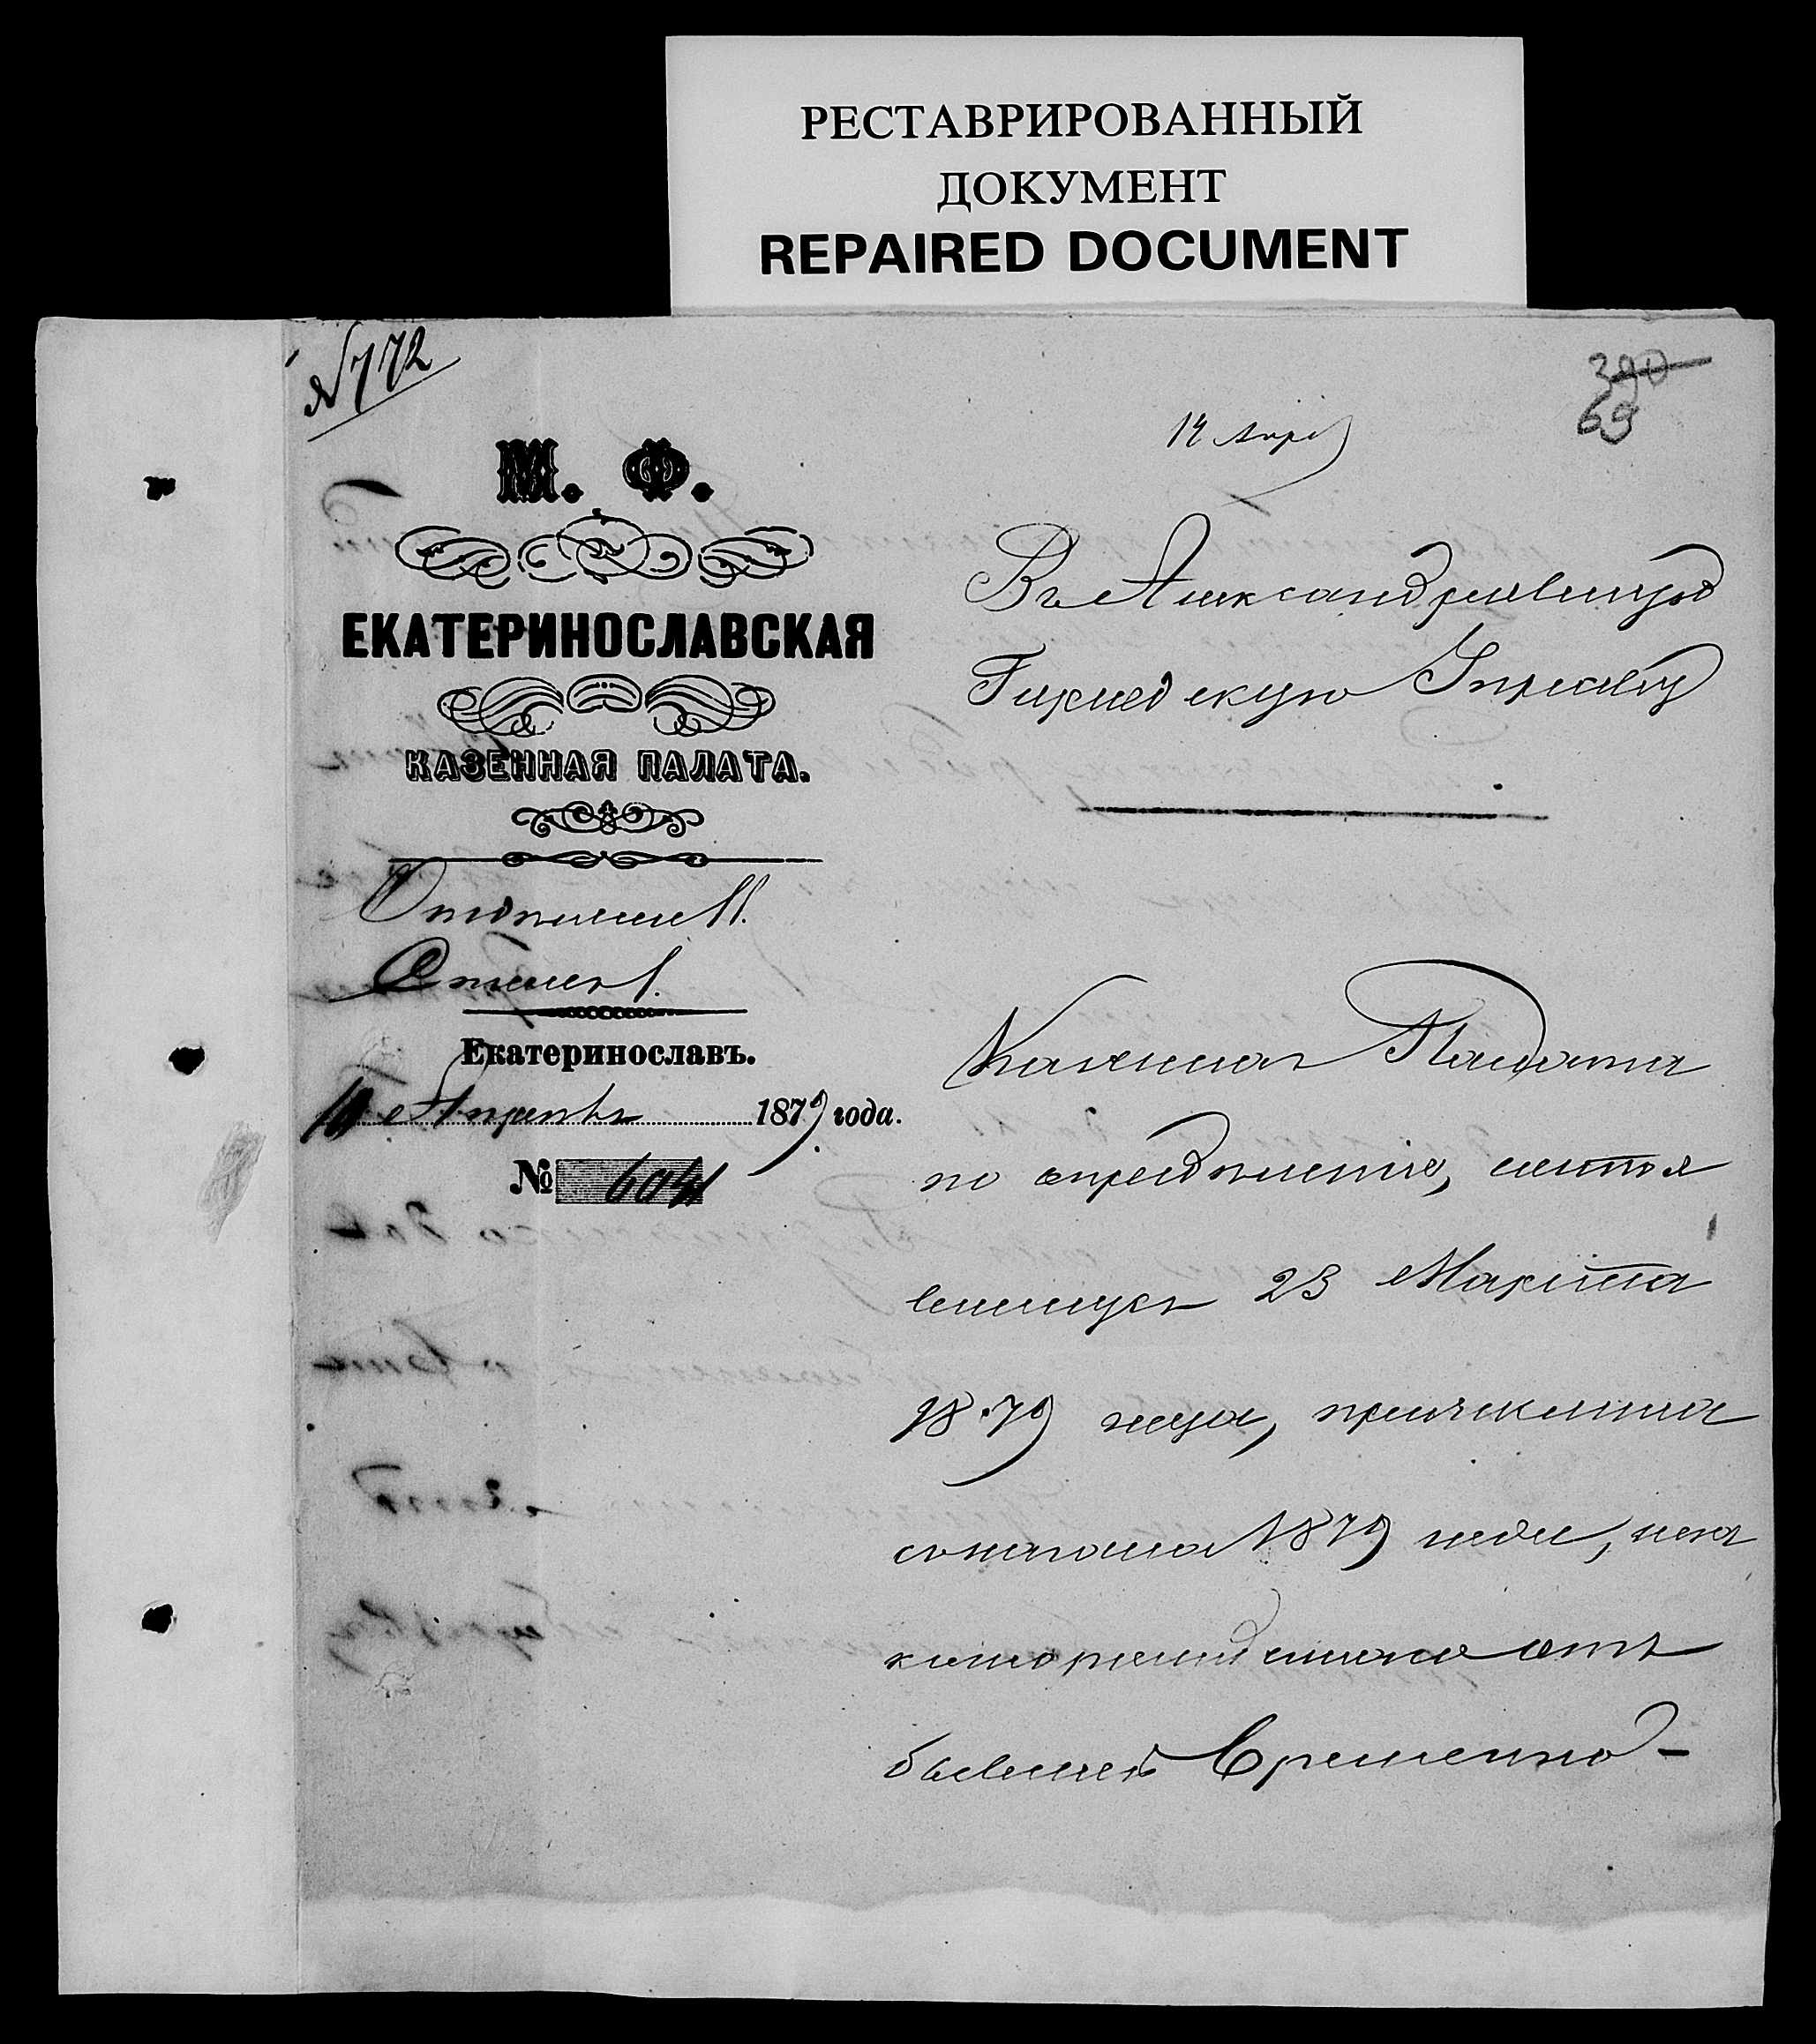 РЕСТАВРИРОВАННЫЙ
ДОКУМЕНТ
REPAIRED DOCUMENT
№ 772
390
69
14 Апрѣ
М. Ф.
ЕКАТЕРИНОСЛАВСКАЯ
КАЗЕННАЯ ПАЛАТА.
Отдѣленіе II.
Столъ I.
Екатеринославъ.
10 Апрѣля 1879 года.
№ 6041
Въ Александровскую
Городскую Управу
Казенная Палата
по опредѣленію, состоя
вшемуся 23 Марта
1879 года, причислила
съ начала 1879 года,
отъ
бывшей Временно-